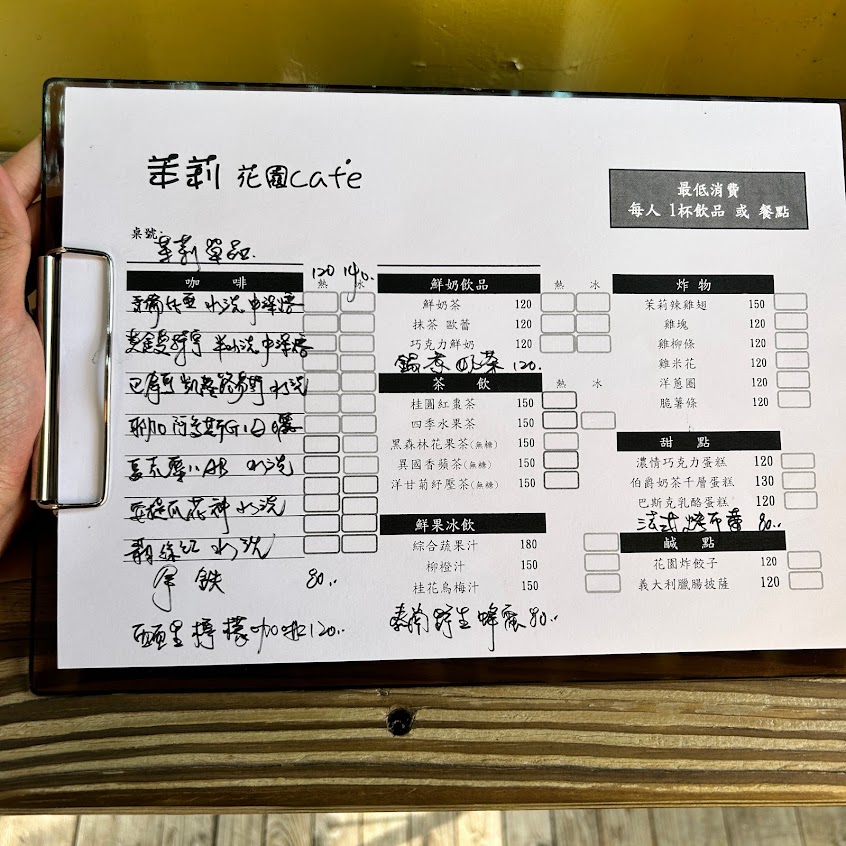 茉莉 花園cafe
最低消費
每人 1杯飲品 或 餐點
桌號:
茉莉單品.
120 140.
咖 啡 熱 冰
水洗 中深焙
半水洗 中深焙
水洗
耶加 G1 日曬
夏威夷 AB 水洗
安提瓜花神 水洗
翡翠 水洗
拿鐵 80..
西西里檸檬咖啡120..
鮮奶飲品 熱 冰
鮮奶茶 120
抹茶 歐蕾 120
巧克力鮮奶 120
鍋煮奶茶 120.
茶 飲 熱 冰
桂圓紅棗茶 150
四季水果茶 150
黑森林花果茶(無糖) 150
異國香蘋茶(無糖) 150
洋甘菊紓壓茶(無糖) 150
鮮果冰飲
綜合蔬果汁 180
柳橙汁 150
桂花烏梅汁 150
泰南野生蜂蜜80..
炸 物
茉莉辣雞翅 150
雞塊 120
雞柳條 120
雞米花 120
洋蔥圈 120
脆薯條 120
甜 點
濃情巧克力蛋糕 120
伯爵奶茶千層蛋糕 130
巴斯克乳酪蛋糕 120
法式烤布蕾 80..
鹹 點
花園炸餃子 120
義大利臘腸披薩 120